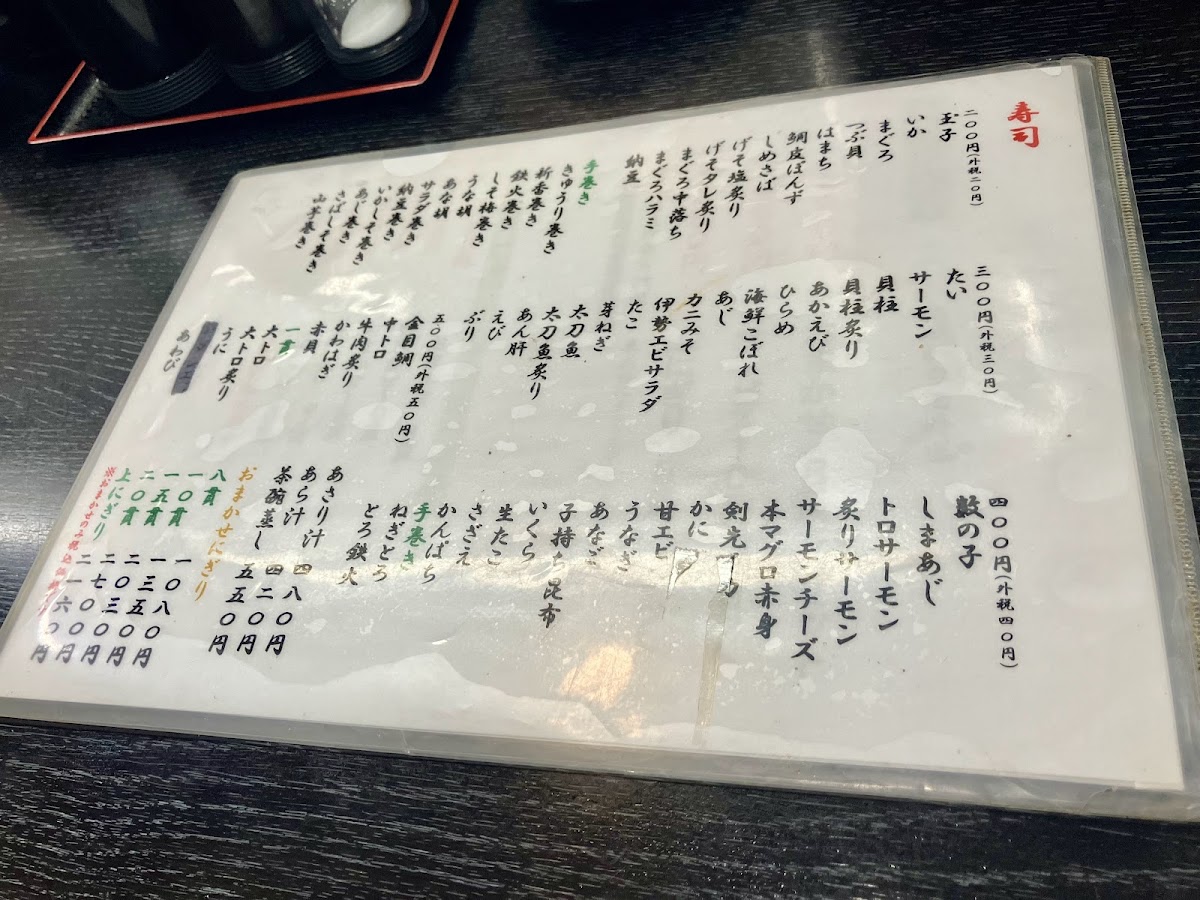 寿司
二〇〇円(外税二〇円)
玉子
いか
まぐろ
つぶ貝
はまち
鯛皮ぽんず
しめさば
げそ塩炙り
げそタレ炙り
まぐろ中落ち
まぐろハラミ
納豆
手巻き
きゅうり巻き
新香巻き
鉄火巻き
しそ梅巻き
うな胡
あな胡
サラダ巻き
納豆巻き
いかしそ巻き
あじ巻き
さばしそ巻き
山芋巻き
三〇〇円(外税三〇円)
たい
サーモン
貝柱
貝柱炙り
あかえび
ひらめ
海鮮こぼれ
あじ
カニみそ
伊勢エビサラダ
たこ
芽ねぎ
太刀魚
太刀魚炙り
あん肝
えび
ぶり
五〇〇円(外税五〇円)
金目鯛
中トロ
牛肉炙り
かわはぎ
赤貝
一貫
大トロ
大トロ炙り
うに
あわび
四〇〇円(外税四〇円)
数の子
しまあじ
トロサーモン
炙りサーモン
サーモンチーズ
本マグロ赤身
剣先
かに
甘エビ
うなぎ
あなご
子持ち昆布
いくら
生たこ
さざえ
かんぱち
手巻き
ねぎとろ
とろ鉄火
あさり汁 四八〇円
あら汁 四二〇円
茶碗蒸し 五五〇円
おまかせにぎり
八貫 一〇八〇円
一〇貫 一三五〇円
一五貫 二〇三〇円
二〇貫 二七〇〇円
上にぎり 二一六〇円
※おまかせのみ税込